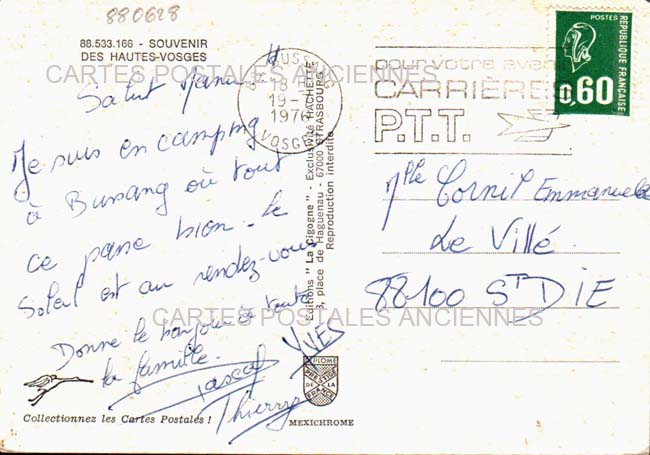 880628
88.533.166 - SOUVENIR
DES HAUTES-VOSGES
CARTES POSTALES ANCIENNES
Salut Manu !!
Je suis en camping
à Bussang où tout
ce passe bien. Le
Soleil est au rendez-vous
Donne le bonjour à toute
la famille.
Pascal
YVES
Thierry
Collectionnez les Cartes Postales !
MEXICHROME
DIPLOME
PRESTIGE
DE LA
FRANCE
Editions "La Cigogne" - Exclusivité HACHETTE
3, place de Haguenau - 67000 STRASBOURG
Reproduction interdite
BUSSANG
18 H
19-7
1976
VOSGES
pour votre avenir
CARRIÈRES
P.T.T.
POSTES
RÉPUBLIQUE FRANÇAISE
0,60
Mlle Cornil Emmanuelle
Le Villé
88100 ST DIE
CARTES POSTALES ANCIENNES